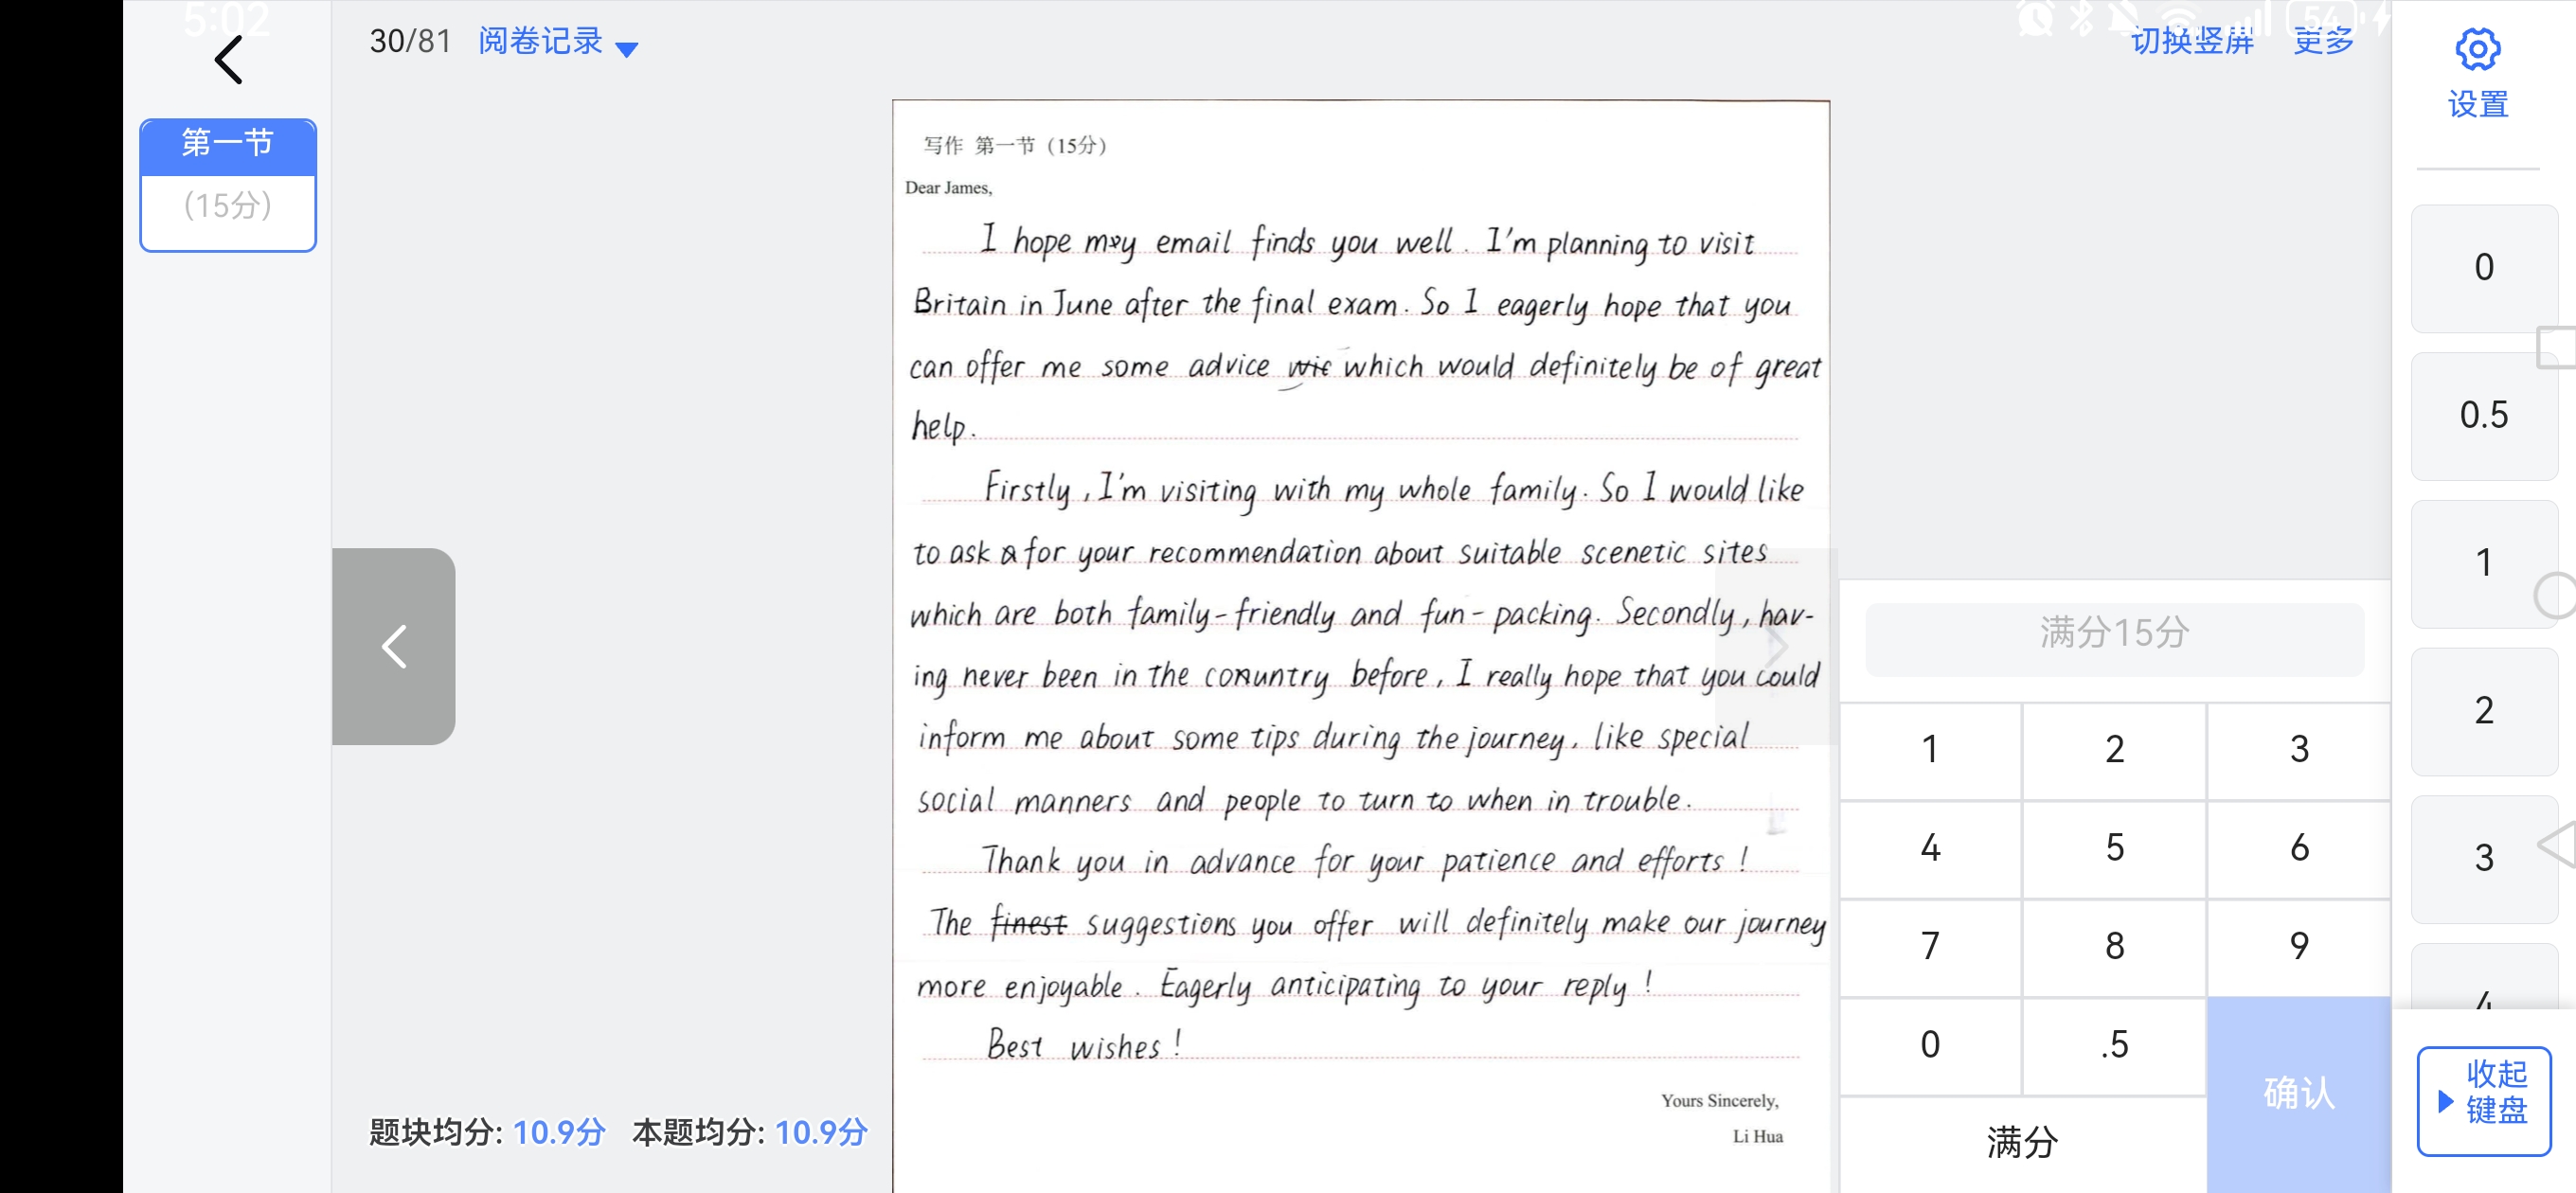 5:02
54
30/81 阅卷记录
切换竖屏 更多
设置
第一节
(15分)
写作 第一节（15分）
Dear James,
I hope my email finds you well. I'm planning to visit
Britain in June after the final exam. So I eagerly hope that you
can offer me some advice which would definitely be of great
help.
Firstly, I'm visiting with my whole family. So I would like
to ask for your recommendation about suitable scenetic sites
which are both family-friendly and fun-packing. Secondly, hav-
ing never been in the country before, I really hope that you could
inform me about some tips during the journey, like special
social manners and people to turn to when in trouble.
Thank you in advance for your patience and efforts!
The finest suggestions you offer will definitely make our journey
more enjoyable. Eagerly anticipating to your reply!
Best wishes!
Yours Sincerely,
Li Hua
题块均分: 10.9分 本题均分: 10.9分
满分15分
1 2 3
4 5 6
7 8 9
0 .5
确认
满分
0
0.5
1
2
3
4
收起
键盘